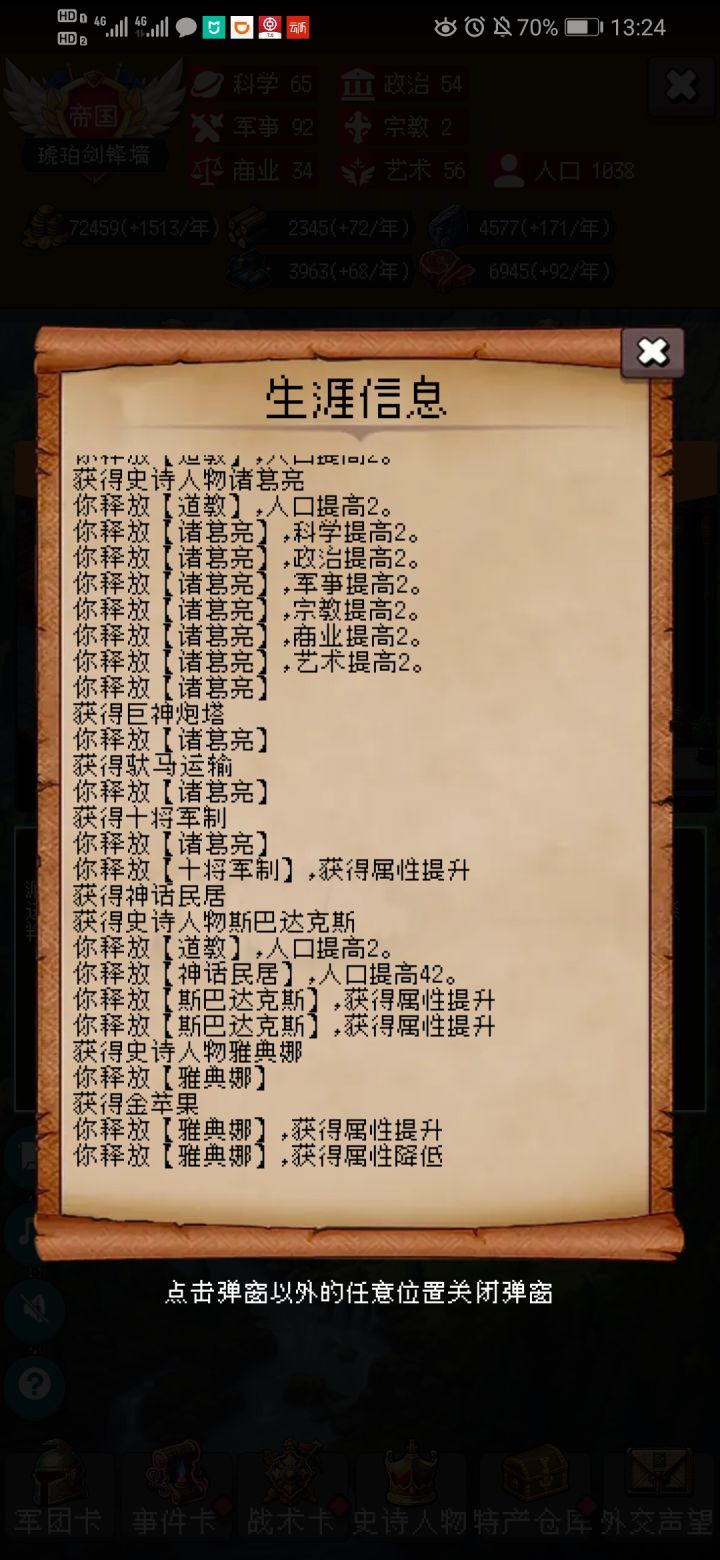 HD 1 4G 4G 70% 13:24
HD 2
帝国
琥珀剑锋墙
科学 65 政治 54
军事 92 宗教 2
商业 34 艺术 56 人口 1038
72459(+1513/年) 2345(+72/年) 4577(+171/年)
3963(+68/年) 6945(+92/年)
生涯信息
你释放【道教】,人口提高2。
获得史诗人物诸葛亮
你释放【道教】,人口提高2。
你释放【诸葛亮】,科学提高2。
你释放【诸葛亮】,政治提高2。
你释放【诸葛亮】,军事提高2。
你释放【诸葛亮】,宗教提高2。
你释放【诸葛亮】,商业提高2。
你释放【诸葛亮】,艺术提高2。
你释放【诸葛亮】
获得巨神炮塔
你释放【诸葛亮】
获得驮马运输
你释放【诸葛亮】
获得十将军制
你释放【诸葛亮】
你释放【十将军制】,获得属性提升
获得神话民居
获得史诗人物斯巴达克斯
你释放【道教】,人口提高2。
你释放【神话民居】,人口提高42。
你释放【斯巴达克斯】,获得属性提升
你释放【斯巴达克斯】,获得属性提升
获得史诗人物雅典娜
你释放【雅典娜】
获得金苹果
你释放【雅典娜】,获得属性提升
你释放【雅典娜】,获得属性降低
点击弹窗以外的任意位置关闭弹窗
军团卡 事件卡 战术卡 史诗人物 特产仓库 外交声望